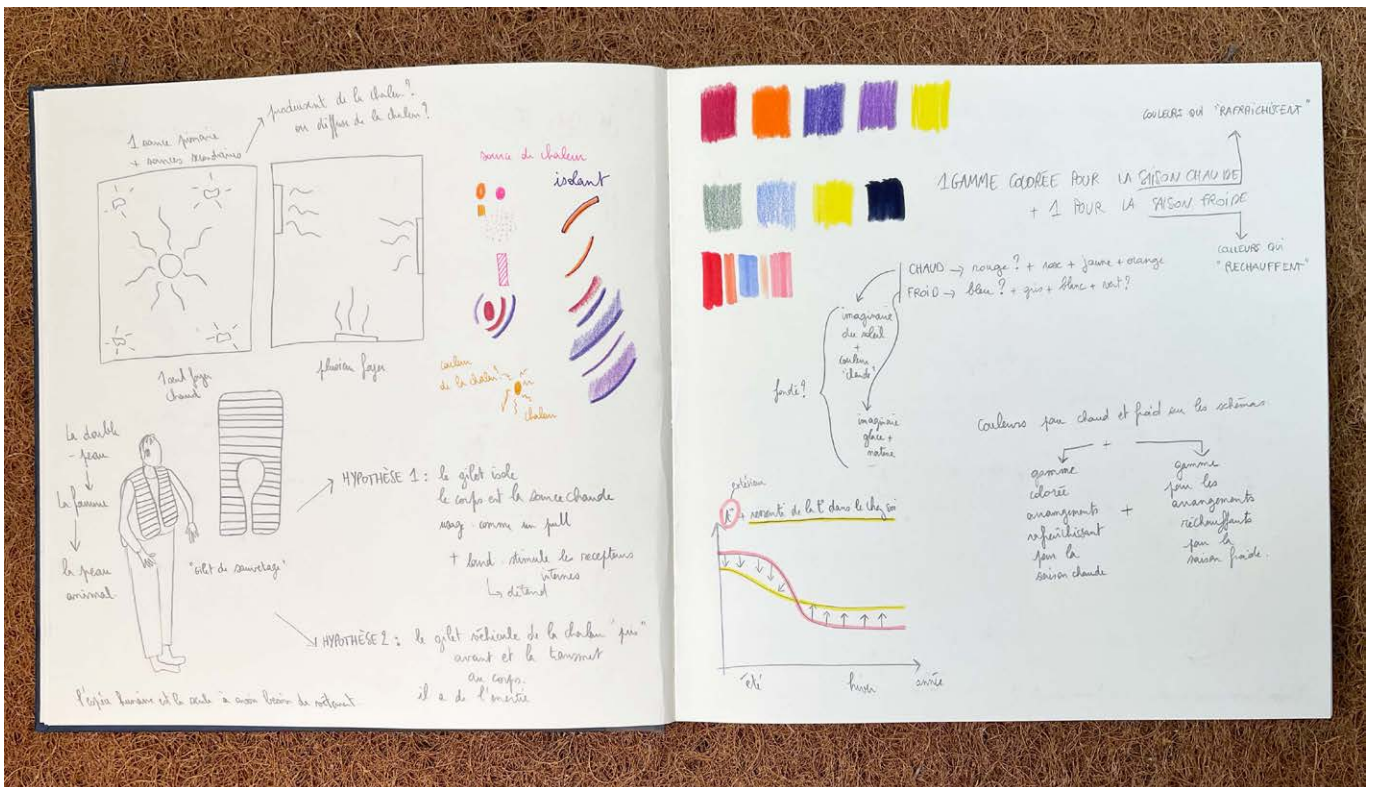 1 source primaire
+ sources secondaires
produisent de la chaleur?
ou diffuse de la chaleur?
1 seul foyer
chaud
plusieurs foyer
source de chaleur
isolant
couleur
de la chaleur?
chaleur
La double
- peau
La fourrure
la peau
animal
"Gilet de sauvetage"
HYPOTHÈSE 1 : le gilet isole
le corps est la source chaude
usage comme un pull
+ lourd stimule les recepteurs
internes
↳ détend
HYPOTHÈSE 2 : le gilet véhicule de la chaleur "pris"
avant et la transmet
au corps.
il a de l'inertie
l'espèce humaine est la seule à avoir besoin de vêtement
COULEURS QUI "RAFRAICHISSENT"
1 GAMME COLORÉE POUR LA SAISON CHAUDE
+ 1 POUR LA SAISON FROIDE
COULEURS QUI
"RECHAUFFENT"
CHAUD → rouge? + rose + jaune + orange
FROID → bleu? + gris + blanc + vert?
imaginaire
du soleil
+
couleur
"chaude"
fondé?
imaginaire
glace +
nature
Couleurs pour chaud et froid sur les schémas.
+
gamme
colorée
arrangements
rafraîchissant
pour la
saison chaude
+
gamme
pour les
arrangements
réchauffants
pour la
saison froide.
extérieur
t° + ressenti de la t° dans le chez soi
été
hiver
année